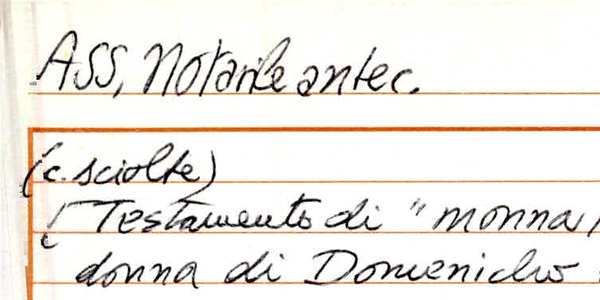 ASS, Notarile antec.
(c. sciolte)
Testamento di "monna
donna di Domenicho